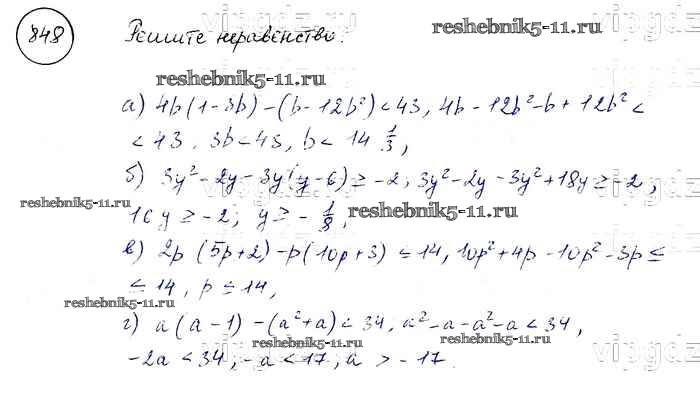 848 Решите неравенство.
reshebnik5-11.ru
vipgdz
reshebnik5-11.ru
а) 4b(1-3b)-(b-12b²)<43, 4b-12b²-b+12b²<
<43, 3b<43, b<14 1/3,
б) 3y²-2y-3y(y-6)≥-2; 3y²-2y-3y²+18y≥-2,
reshebnik5-11.ru
16y≥-2; y≥-1/8,
reshebnik5-11.ru
в) 2p(5p+2)-p(10p+3)≤14, 10p²+4p-10p²-3p≤
≤14, p≤14,
reshebnik5-11.ru
г) a(a-1)-(a²+a)<34, a²-a-a²-a<34,
-2a<34, -a<17, a>-17.
reshebnik5-11.ru
reshebnik5-11.ru
vipgdz